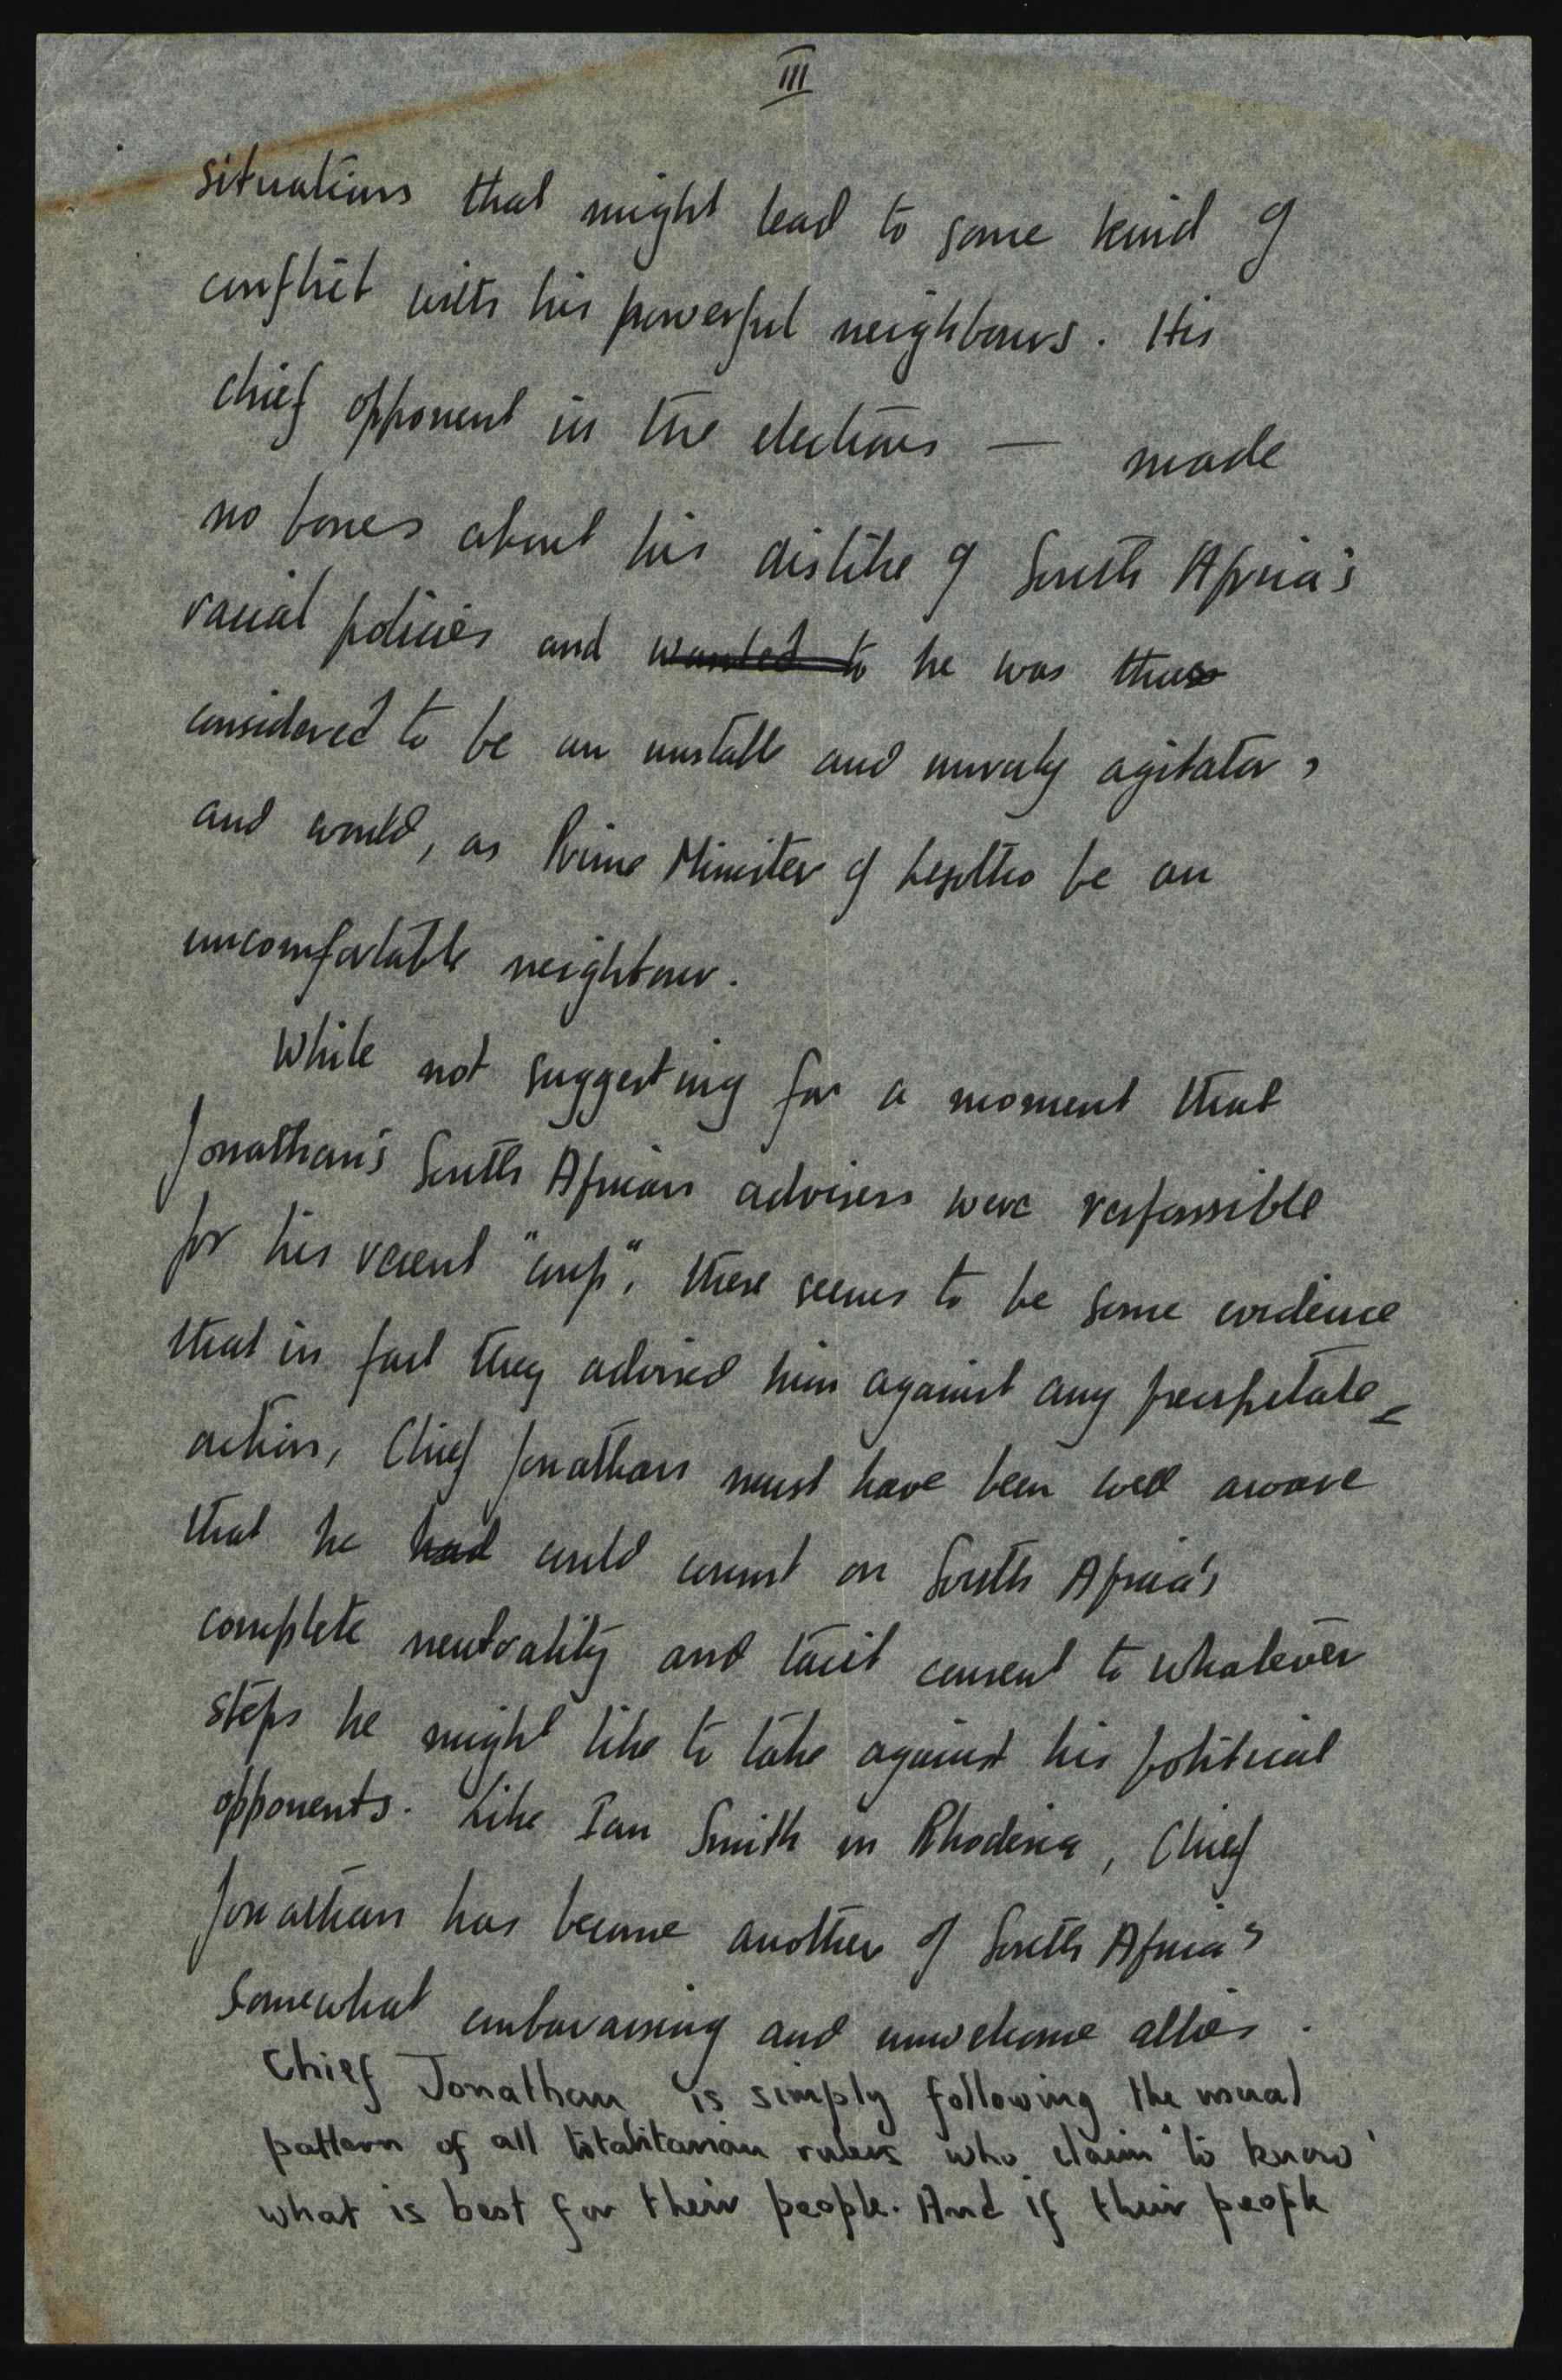 III
situations that might lead to some kind of
conflict with his powerful neighbours. His
chief opponent in the elections — made
no bones about his dislike of South Africa's
racial policies and wanted to he was thus
considered to be an unstable and unruly agitator,
and would, as Prime Minister of Lesotho be an
uncomfortable neighbour.
While not suggesting for a moment that
Jonathan's South African advisers were responsible
for his recent "coup", there seems to be some evidence
that in fact they advised him against any precipitate
action, Chief Jonathan must have been well aware
that he had could count on South Africa's
complete neutrality and tacit consent to whatever
steps he might like to take against his political
opponents. Like Ian Smith in Rhodesia, Chief
Jonathan has become another of South Africa's
somewhat embarassing and unwelcome allies.
Chief Jonathan is simply following the usual
pattern of all totalitarian rulers who claim 'to know'
what is best for their people. And if their people